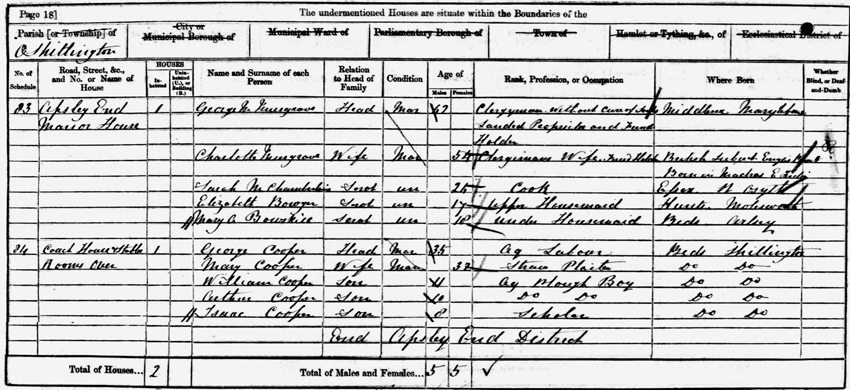 Page 18] The undermentioned Houses are situate within the Boundaries of the
Parish [or Township] of City or Municipal Borough of Municipal Ward of Parliamentary Borough of Town of Hamlet or Tything, &c., of Ecclesiastical District of
Shillington
No. of Schedule Road, Street, &c., and No. or Name of House HOUSES Inhabited Uninhabited (U.), or Building (B.) Name and Surname of each Person Relation to Head of Family Condition Age of Males Females Rank, Profession, or Occupation Where Born Whether Blind, or Deaf-and-Dumb
83 Apsley End 1 George M Musgrave Head Mar Clergyman without Cure of Middlesex Marylebone
Manor House Landed Proprietor and Fund
Holder
Charlotte Musgrave Wife Mar 54 Clergimans Wife Fund British Subject
Born in Madras
Sarah M Chamberlain Servt un 25 Cook Essex St Osyth
Elizabeth Servt un 17 upper Housemaid Hunts Molesworth
Mary A Servt un 18 under Housemaid Beds Arlesy
84 Coach House & Stable 1 George Cooper Head Mar 35 Ag Labour Beds Shillington
Rooms Over Mary Cooper Wife Mar 32 Straw Plaiter Do Do
William Cooper Son 11 Ag Plough Boy Do Do
Arthur Cooper Son 10 Do Do Do Do
Isaac Cooper Son 8 Scholar Do Do
End Apsley End District
Total of Houses... 2 Total of Males and Females... 5 5